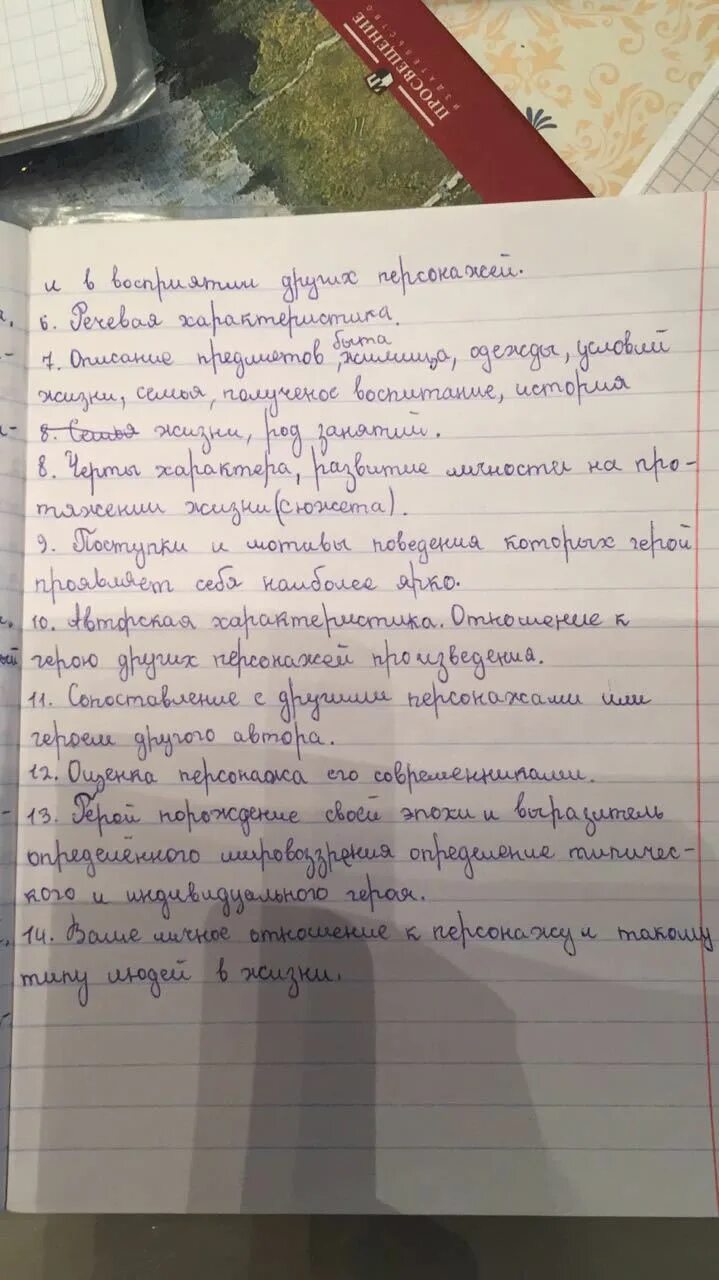 ПРОСВЕЩЕНИЕ
ИЗДАТЕЛЬСТВО
и в восприятии других персонажей.
6. Речевая характеристика.
7. Описание предметов быта, жилища, одежды, условий
жизни, семья, полученое воспитание, история
8. Семья жизни, род занятий.
8. Черты характера, развитие личности на про-
тяжении жизни (сюжета).
9. Поступки и мотивы поведения которых герой
проявляет себя наиболее ярко.
10. Авторская характеристика. Отношение к
герою других персонажей произведения.
11. Сопоставление с другими персонажами или
героем другого автора.
12. Оценка персонажа его современниками.
13. Герой порождение своей эпохи и выразитель
определённого мировоззрения определение типичес-
кого и индивидуального герая.
14. Ваше личное отношение к персонажу и такому
типу людей в жизни.